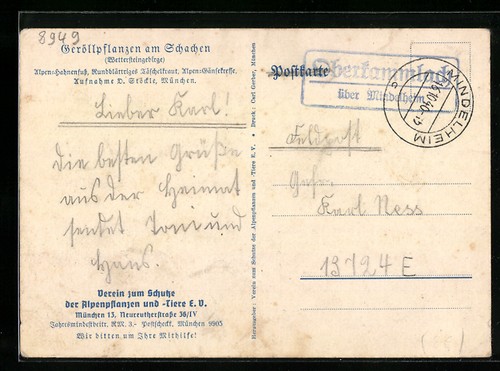 8949
Geröllpflanzen am Schachen
(Wettersteingebirge)
Alpen-Hahnenfuß, Rundblättriges Täschelkraut, Alpen-Gänsekresse.
Aufnahme D. Stöckle, München.
Lieber Karl!
Die besten Grüße
aus der Heimat
sendet Toni und
Hans.
Verein zum Schutze
der Alpenpflanzen und -Tiere E. V.
München 13, Neureutherstraße 38/IV
Jahresmindestbeitr. RM. 3.- Postscheckk. München 9905
Wir bitten um Ihre Mithilfe!
Herausgeber: Verein zum Schutze der Alpenpflanzen und -Tiere E. V. • Druck: Carl Gerber, München
Postkarte
Oberkammlach
über Mindelheim
MINDELHEIM
Feldpost
Gefr.
Karl Ness
13724 E